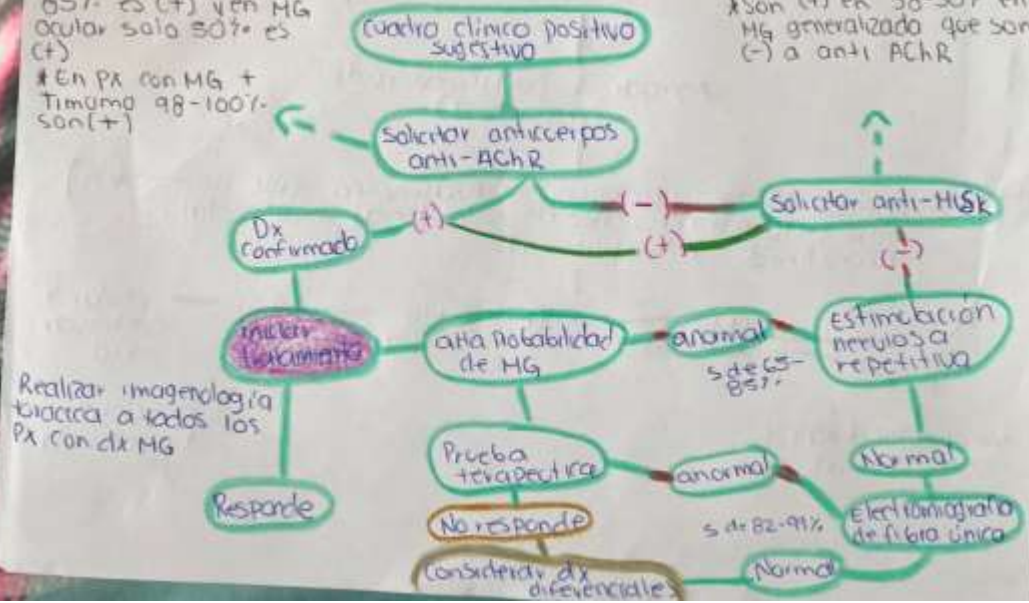 85% es (+) y en MG
ocular solo 50% es
(+)
* En Px con MG +
Timoma 98-100%
son (+)
cuadro clínico positivo
sugestivo
* Son (+) en
MG generalizado que son
(-) a anti AChR
Solicitar anticuerpos
anti-AChR
(-)
Solicitar anti-MUSK
(+)
(+)
Dx
confirmado
(-)
iniciar
tratamiento
alta probabilidad
de MG
anormal
s de 65-
85%
Estimulación
nerviosa
repetitiva
Realizar imagenología
torácica a todos los
Px con dx MG
Prueba
terapeutica
anormal
Normal
Responde
No responde
s de 82-99%
Electromiografía
de fibra única
Considerar dx
diferenciales
Normal